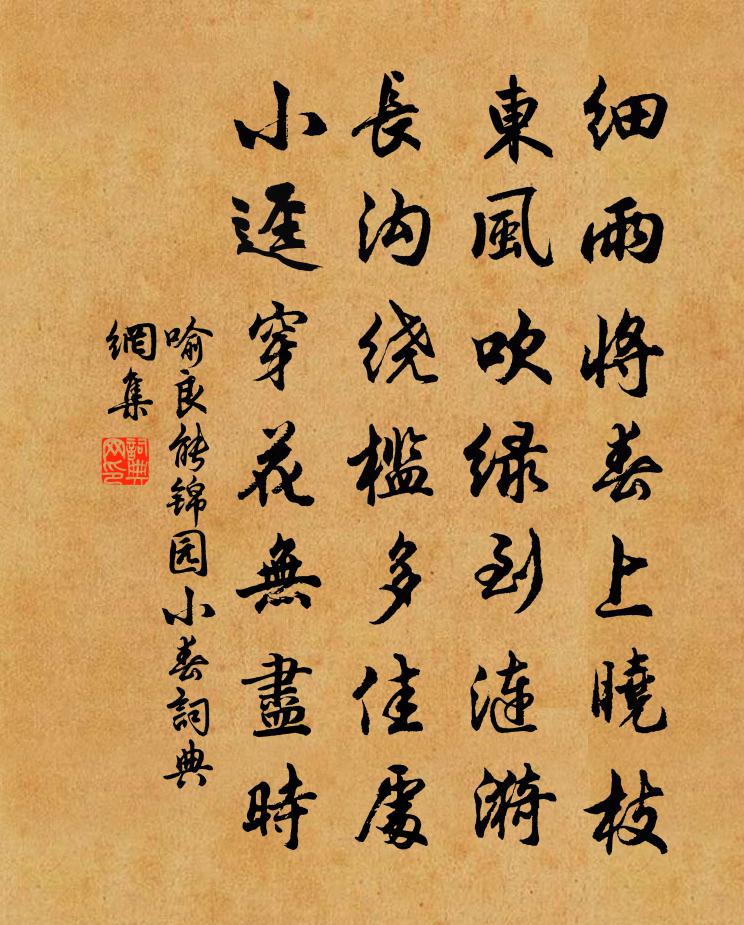 细雨将春上曉枝
東風吹緑到漣漪
長沟绕槛多佳處
小逕穿花無盡時
喻良能锦园小春詞典
網集
詞典
网印